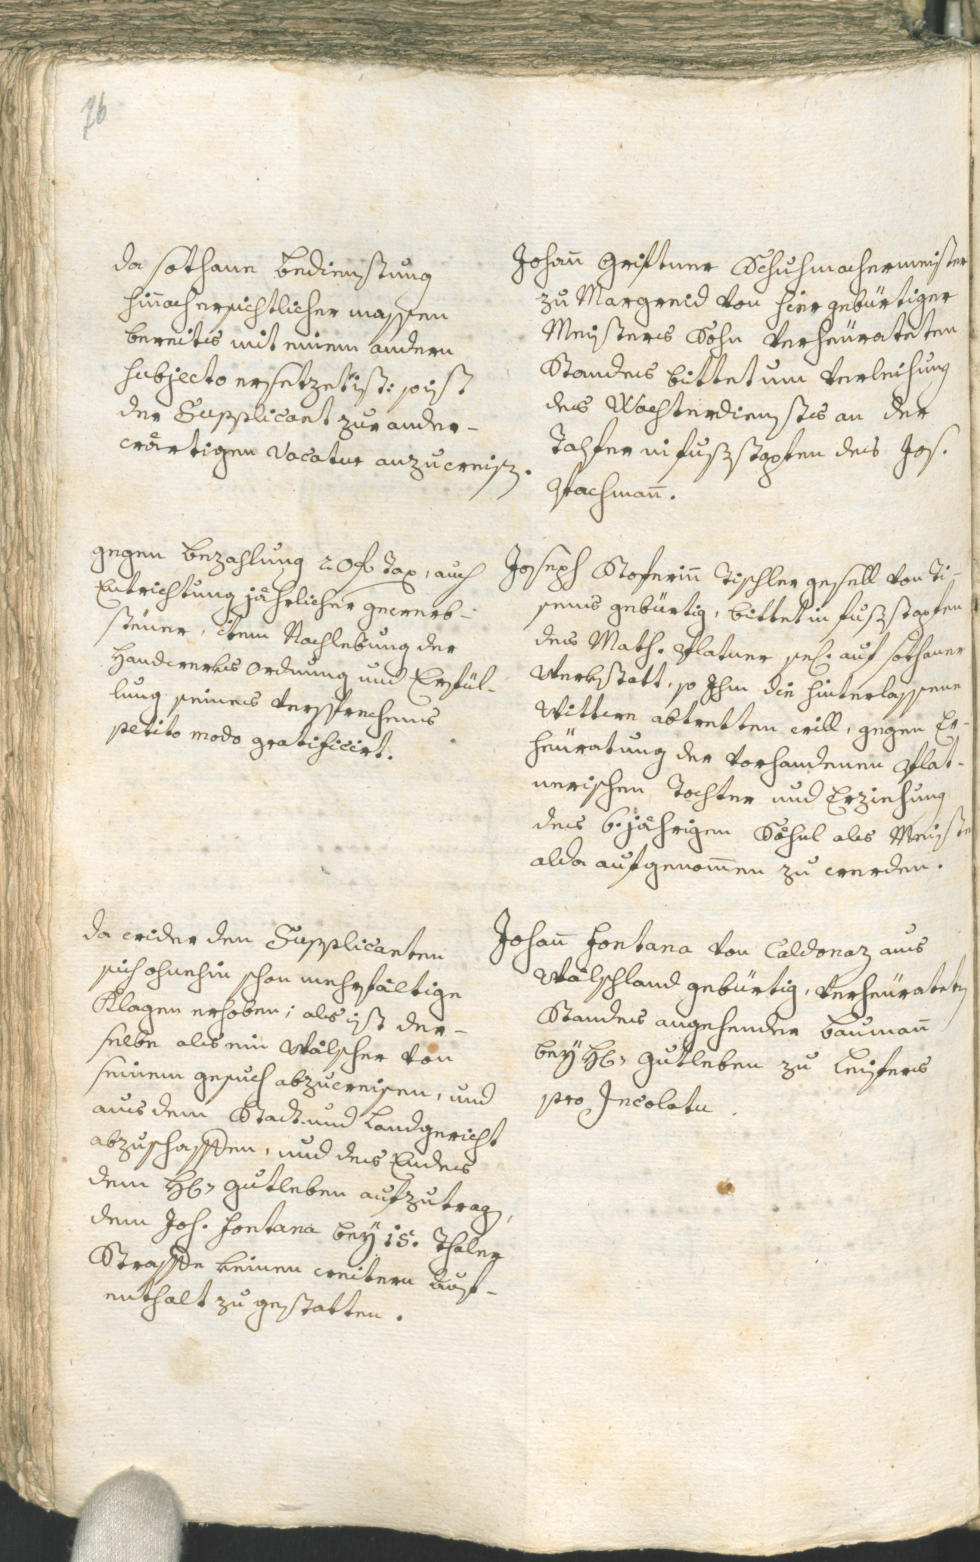 76
da sothane Bedienstung
hinnachersichtlicher massen
bereits mit einem andern
subjecto ersetzet ist: so ist
der Supplicant zur ander-
wärtigen Vacatur anzuweis.
Johann Griftner Schuhmachermeister
zu Margreid von hier gebürtiger
Meisters Sohn verheürateten
Standes bittet um Verleihung
des Wachterdienstes an der
Talfer in fußstapfen des Jos.
Pachmann.
gegen Bezahlung 20 f. Tax, auch
Entrichtung jährlicher gewerb-
steüer, item Nachlebung der
Handwerks Ordnung und Erfül-
lung seines Versprechens
petito modo gratificirt.
Joseph Stoferin Tischler gesell von Ti-
sens gebürtig, bittet in fußstapfen
des Math. Platner sel. auf sothaner
Werkstatt, so Ihm die hinterlassene
Wittwe abtretten will, gegen Er-
heüratung der vorhandenen Plat-
nerischen Tochter und Erziehung
des 6. jährigen Söhnl als Meister
alda aufgenommen zu werden.
da wider den Supplicanten
sich ohnehin schon mehrfältige
Klagen erhoben; als ist der-
selbe als ein Wälscher von
seinem gesuch abzuweisen, und
aus dem Stadt und Landgericht
abzuschaffen, und des Endes
dem H. gutleben aufzutrag,
dem Joh. Fontana bey 15. Thaler
Straffe keinen weitern Auf-
enthalt zu gestatten.
Johann Fontana von Caldonaz aus
Wälschland gebürtig, verheürateten
Standes angehender Baumann
bey H. gutleben zu Leifers
pro Incolatu.